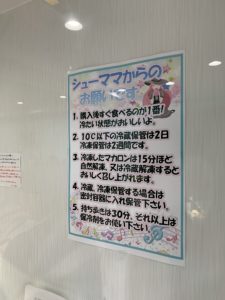 シューママからの
お願いです
1. 購入後すぐ食べるのが1番!
冷たい状態がおいしいよ。
2. 10℃以下の冷蔵保管は2日
冷凍保管は2週間です。
3. 冷凍したマカロンは15分ほど
自然解凍、又は冷蔵解凍すると
おいしく召し上がれます。
4. 冷蔵、冷凍保管する場合は
密封容器に入れ保管下さい。
5. 持ち歩きは30分、それ以上は
保冷剤をお使い下さい。